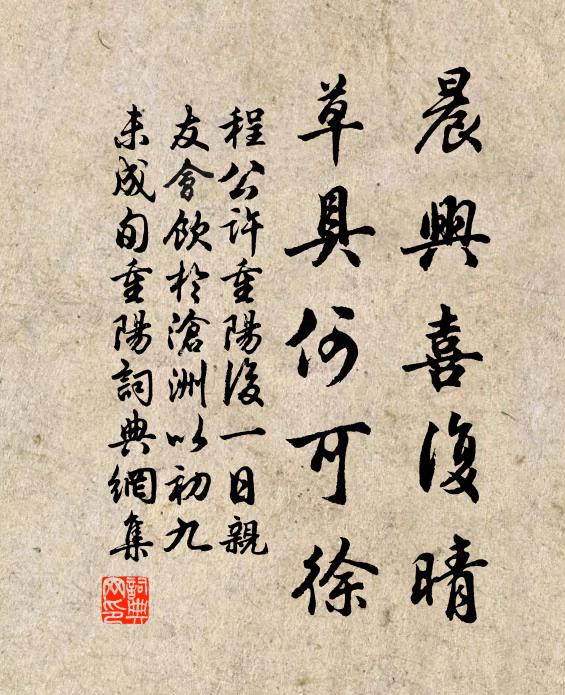 晨興喜復晴
草具何可徐
程公許重陽後一日親
友會飲於滄洲以初九
未成旬重陽詞典網集
詞典网印